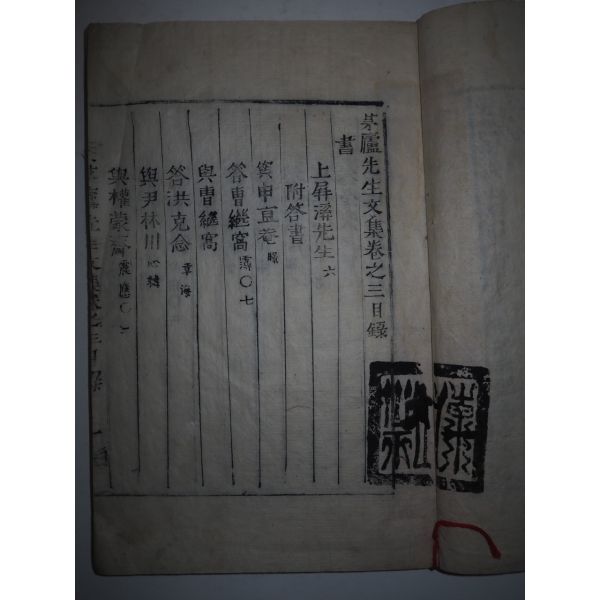 茅廬先生文集卷之三目錄
書
上屛溪先生 六
附答書
與申直菴 暻
答曹繼窩 霱〇七
與曹繼窩
答洪克念 章海
與尹林川 心緯
與權蒙 震應〇